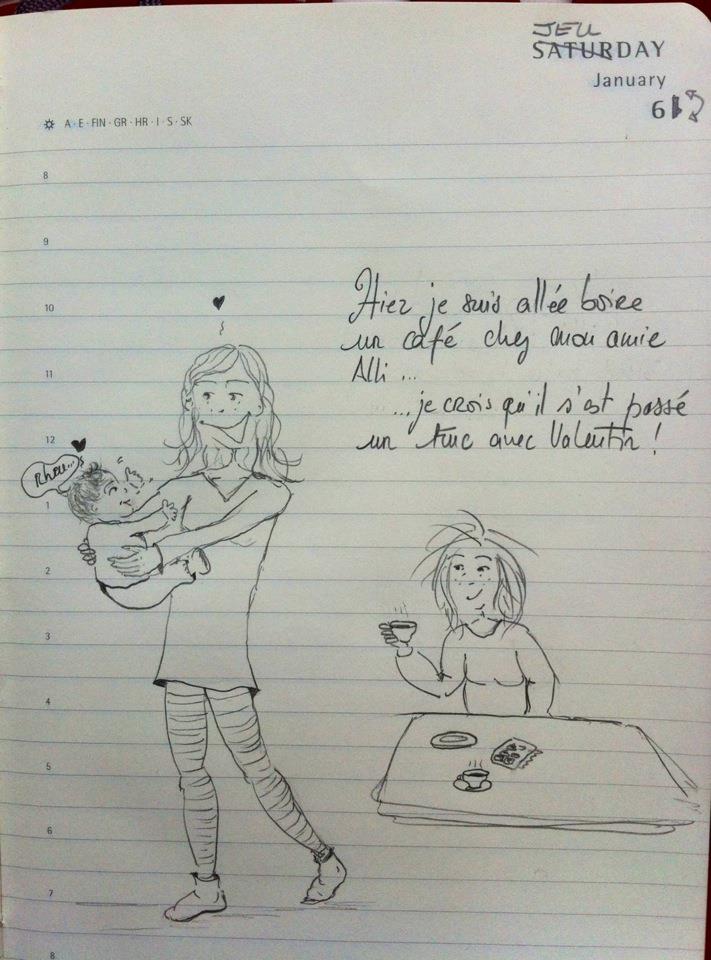 JEU
SATURDAY
January
6
A·E·FIN·GR·HR·I·S·SK
8
9
10
11
12
1
2
3
4
5
6
7
8
Hier je suis allée boire
un café chez mon amie
Alli ...
...je crois qu'il s'est passé
un truc avec Valentin !